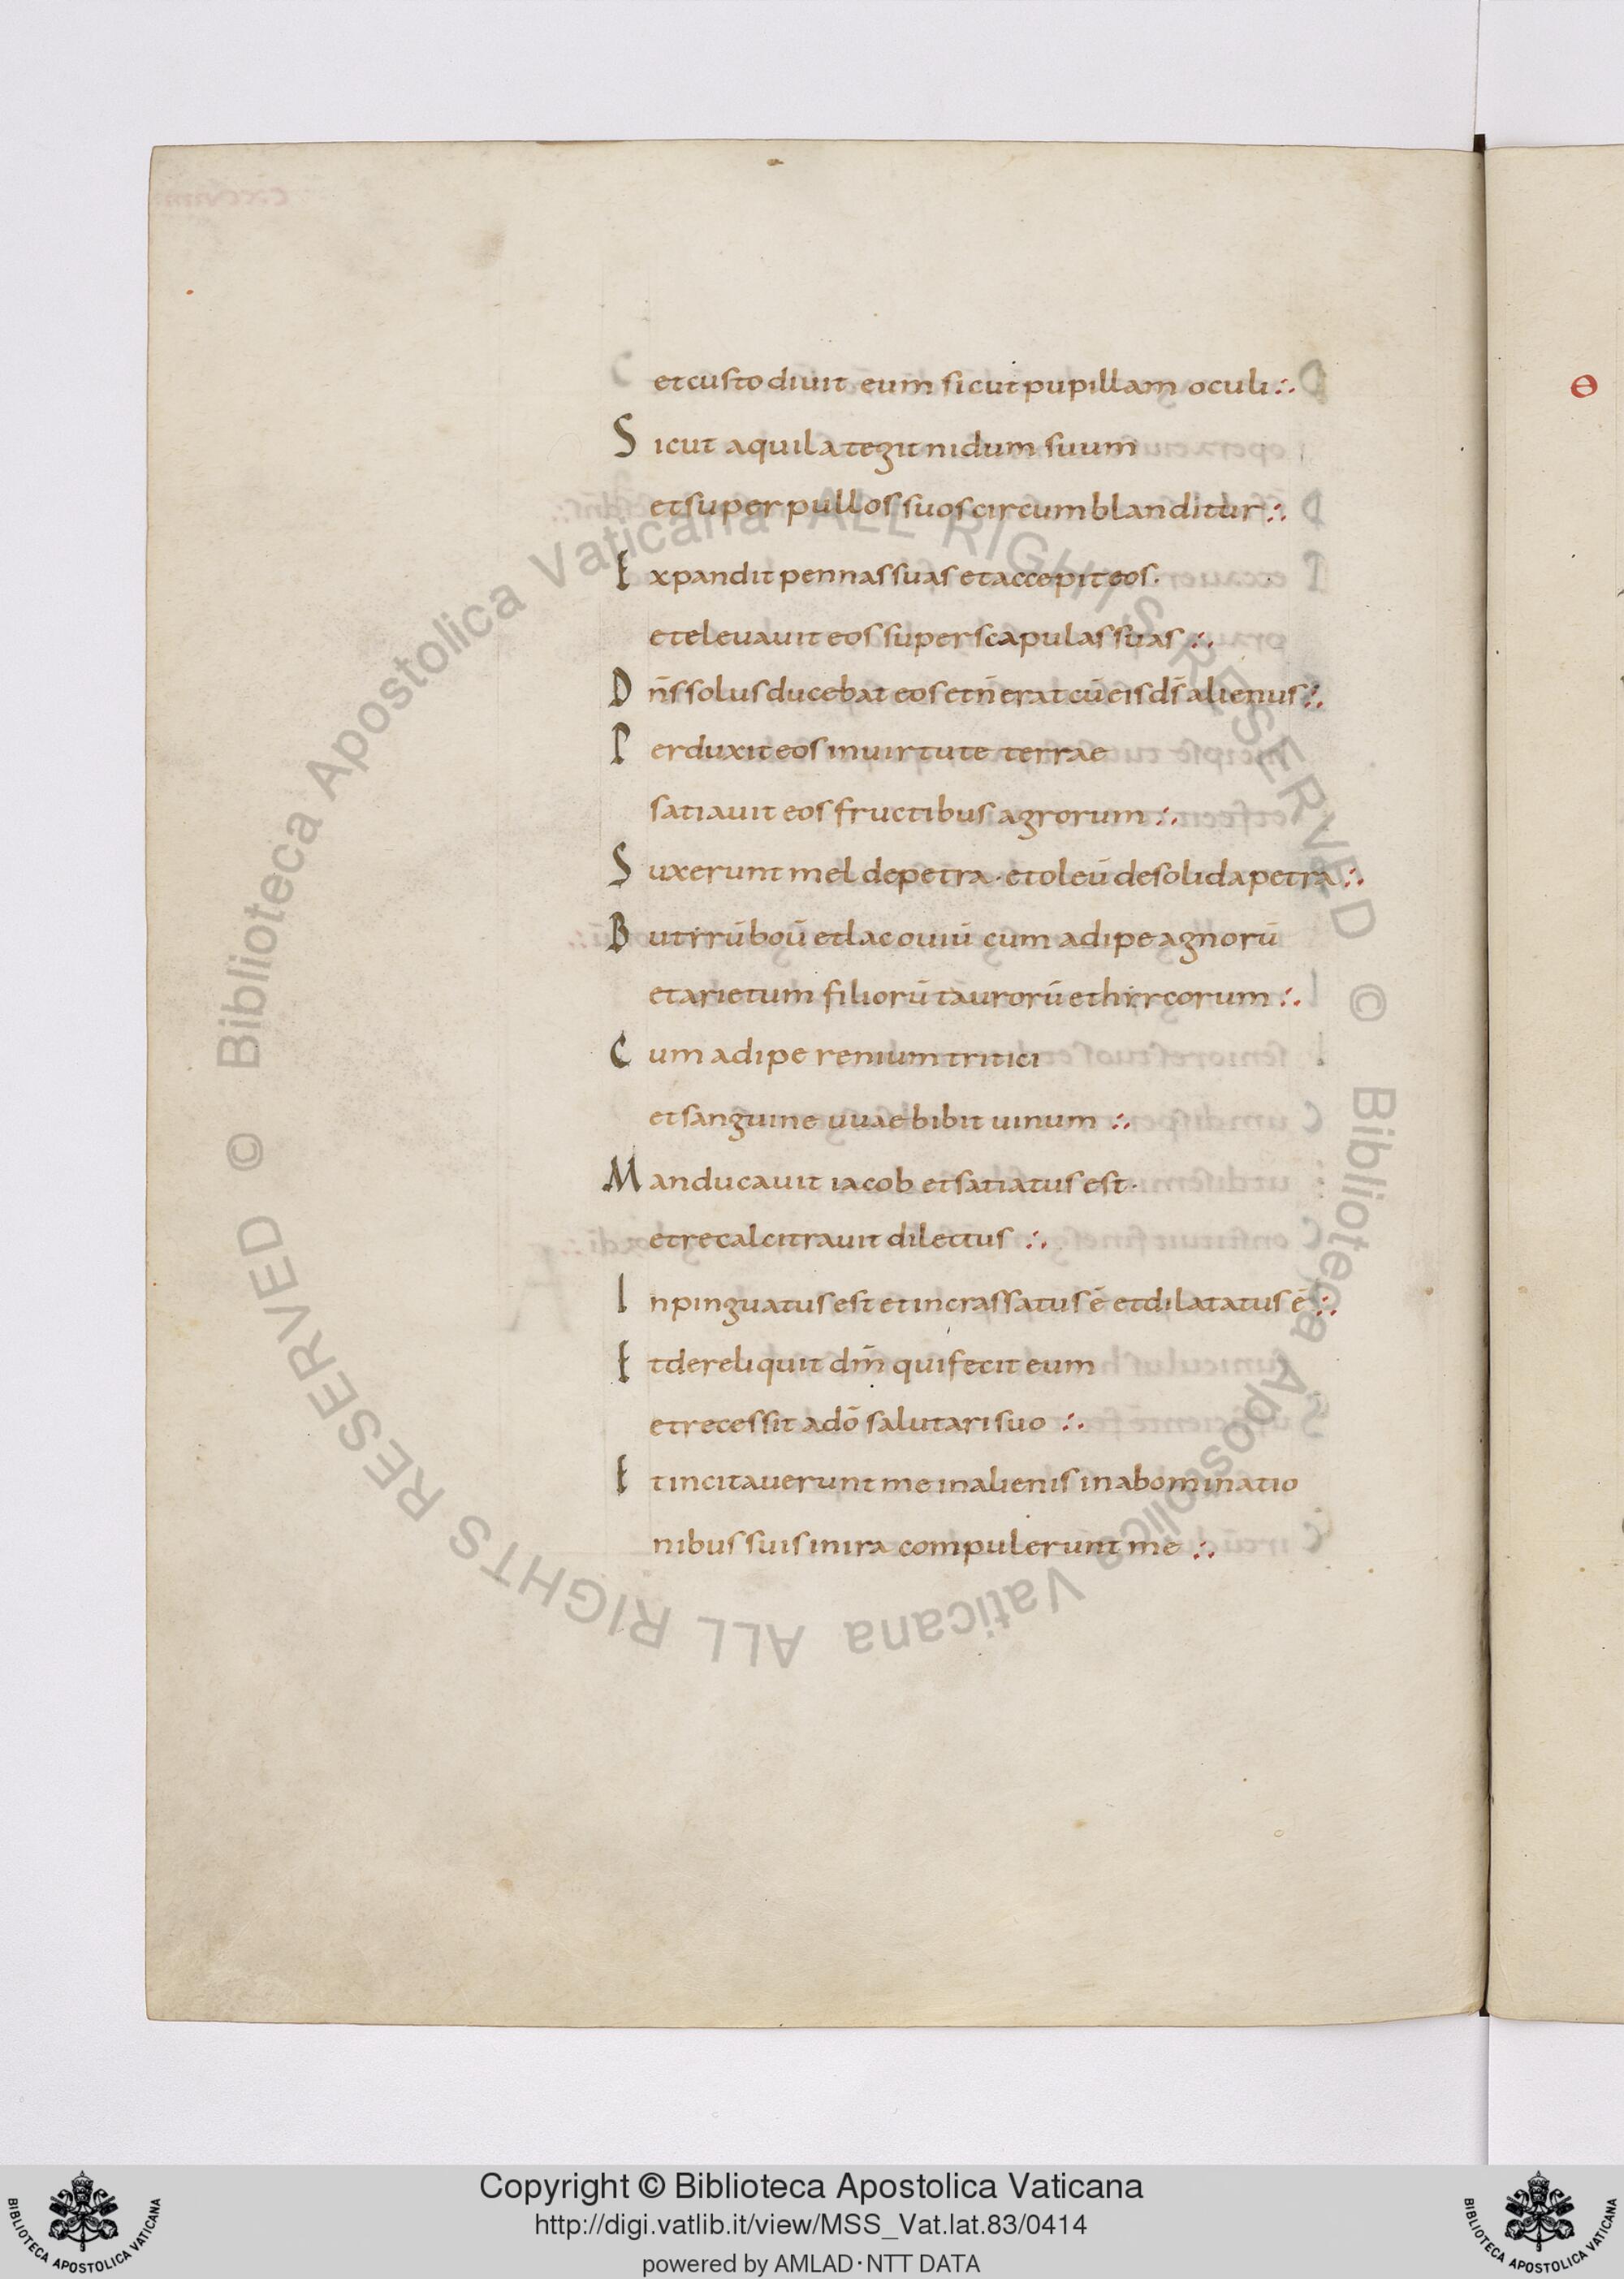 et custodiuit eum sicut pupillam oculi :.
Sicut aquila tegit nidum suum
et super pullos suos circumblanditur :.
Expandit pennas suas et accepit eos.
et eleuauit eos super scapulas suas :.
Dn̄s solus ducebat eos et n̄ erat cū eis ds̄ alienus :.
Perduxit eos in uirtute terrae
satiauit eos fructibus agrorum :.
Suxerunt mel de petra · et oleū de solida petra :.
Butirū boū et lac ouiū cum adipe agnorū
et arietum filiorū taurorū et hircorum :.
Cum adipe renium tritici
et sanguine uuae bibit uinum :.
Manducauit iacob et satiatus est ·
et recalcitrauit dilectus :.
Inpinguatus est et incrassatus ē et dilatatus ē :.
Et dereliquit dm̄ qui fecit eum
et recessit a dō salutari suo :.
Et incitauerunt me in alienis in abominatio
nibus suis in ira compulerunt me :.
Θ
© Biblioteca Apostolica Vaticana ALL RIGHTS RESERVED © Biblioteca Apostolica Vaticana ALL RIGHTS RESERVED
Copyright © Biblioteca Apostolica Vaticana
http://digi.vatlib.it/view/MSS_Vat.lat.83/0414
powered by AMLAD·NTT DATA
BIBLIOTECA APOSTOLICA VATICANA
BIBLIOTECA APOSTOLICA VATICANA